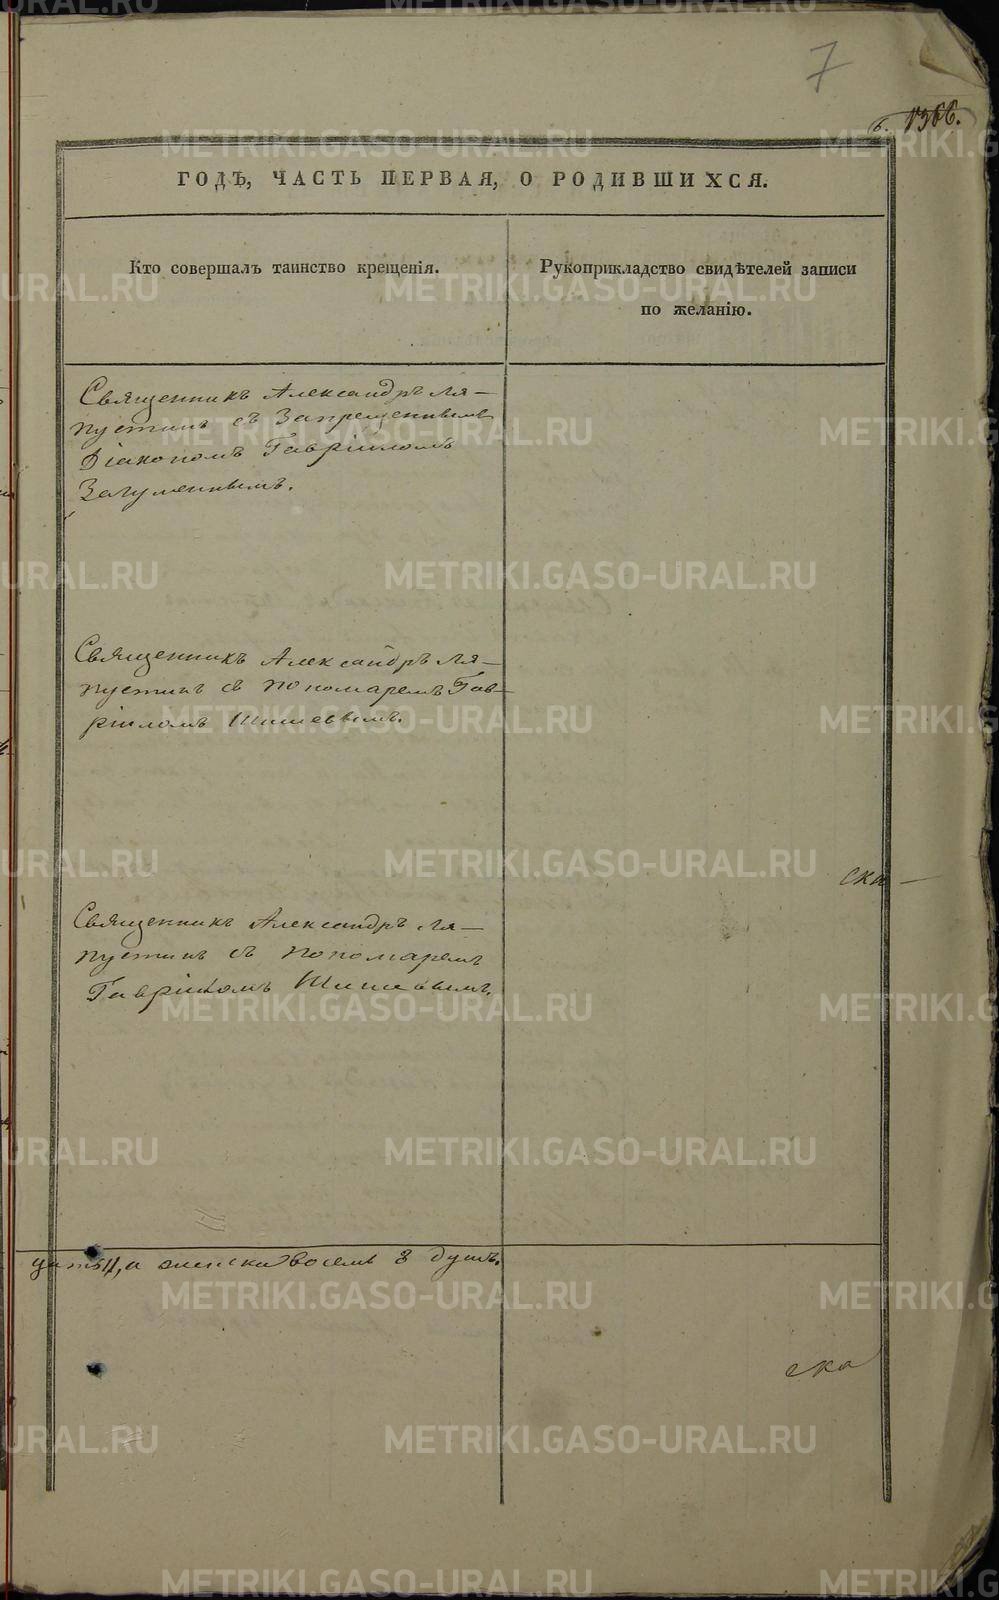 7
б. 1366.
ГОДЪ, ЧАСТЬ ПЕРВАЯ, О РОДИВШИХСЯ.
Кто совершалъ таинство крещенія.
Рукоприкладство свидѣтелей записи
по желанію.
Священникъ Александръ Ля-
пустинъ съ Запрещеннымъ
Діакономъ Гавріиломъ
Загуменнымъ.
Священникъ Александръ Ля-
пустинъ съ пономаремъ Гав-
ріиломъ Шишевымъ.
ска —
Священникъ Александръ Ля-
пустинъ съ пономаремъ
Гавріиломъ Шишевымъ.
женска восемь 8 душъ.
ска
METRIKI.GASO-URAL.RU